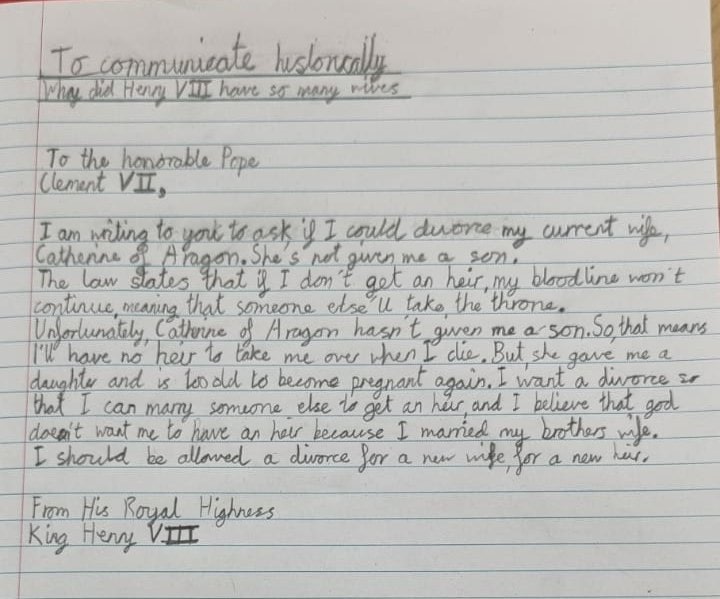 To communicate historically
Why did Henry VIII have so many wives
To the honorable Pope
Clement VII,
I am writing to you to ask if I could divorce my current wife,
Catherine of Aragon. She's not given me a son.
The law states that if I don't get an heir, my bloodline won't
continue, meaning that someone else'll take the throne.
Unfortunately, Catherine of Aragon hasn't given me a son. So, that means
I'll have no heir to take me over when I die. But, she gave me a
daughter and is too old to become pregnant again. I want a divorce so
that I can marry someone else to get an heir, and I believe that god
doesn't want me to have an heir because I married my brothers wife.
I should be allowed a divorce for a new wife, for a new heir.
From His Royal Highness
King Henry VIII